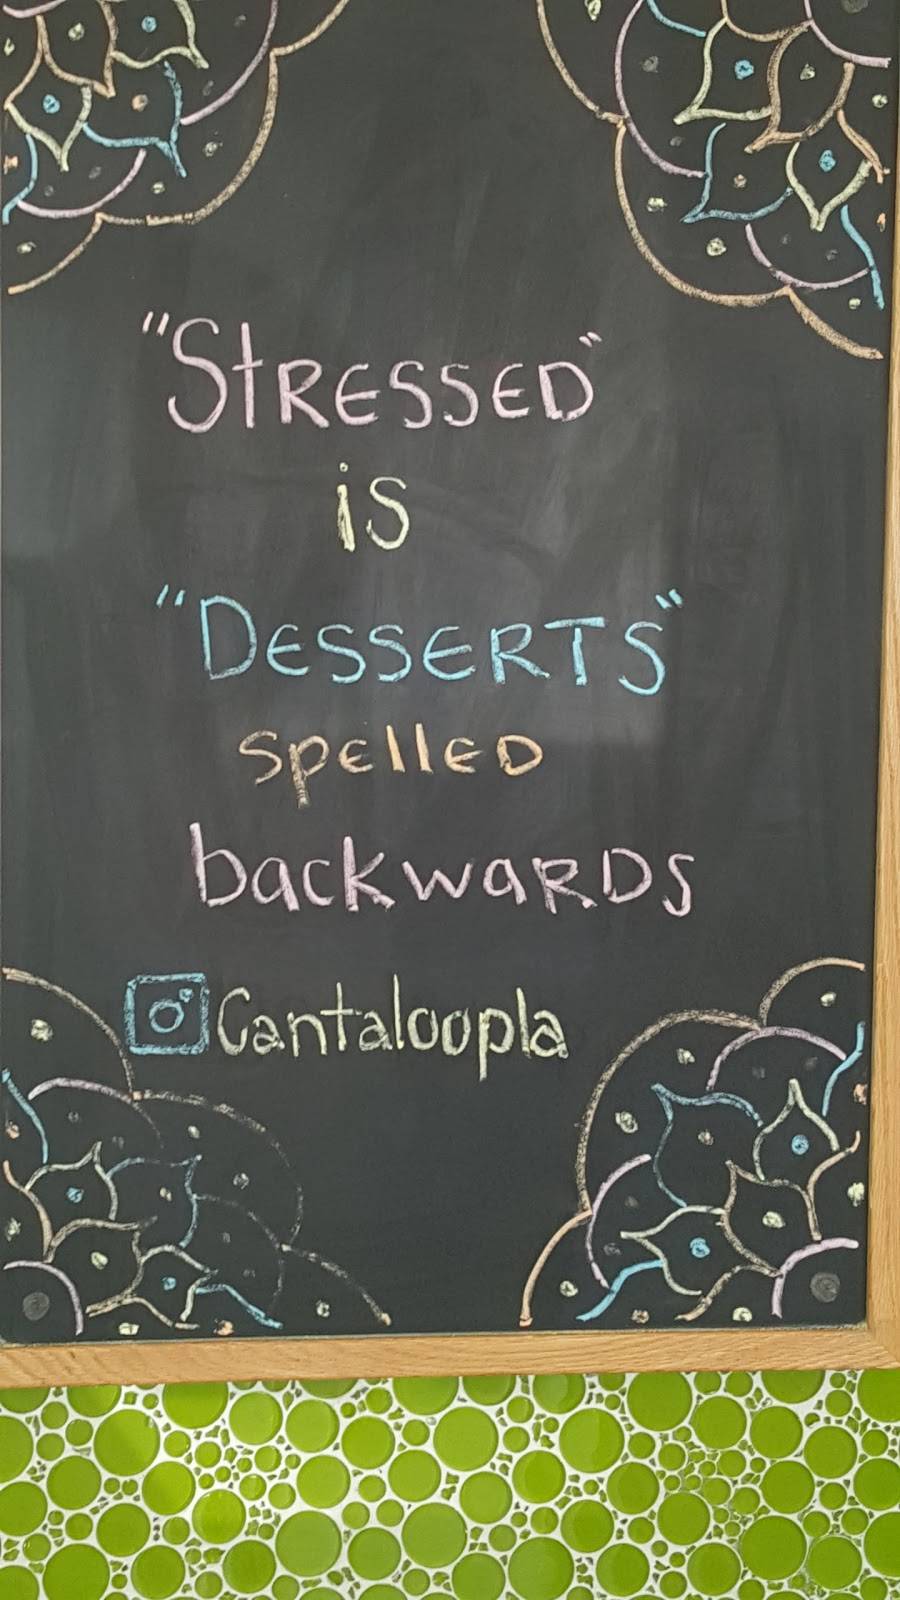 "StRESSED"
is
"DESSERTS"
spelled
backwaRDS
Cantaloopla